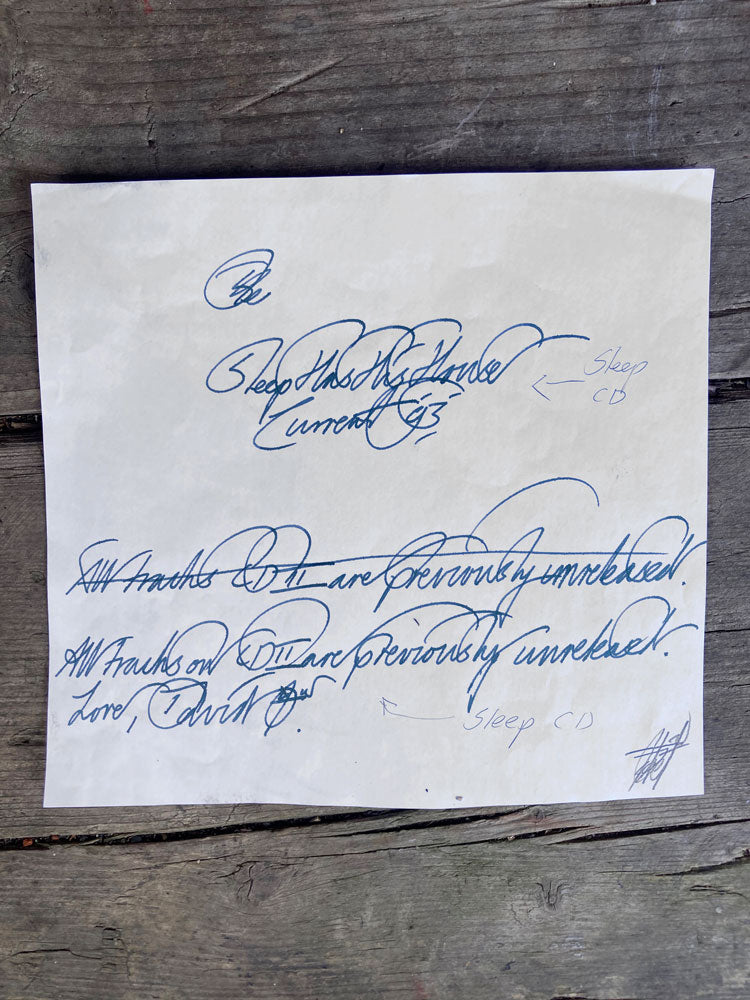 Sleep Has His House
Current '93'
Sleep
CD
All tracks CD II are previously unreleased.
All tracks on CD II are previously unreleased.
Love, David
Sleep CD